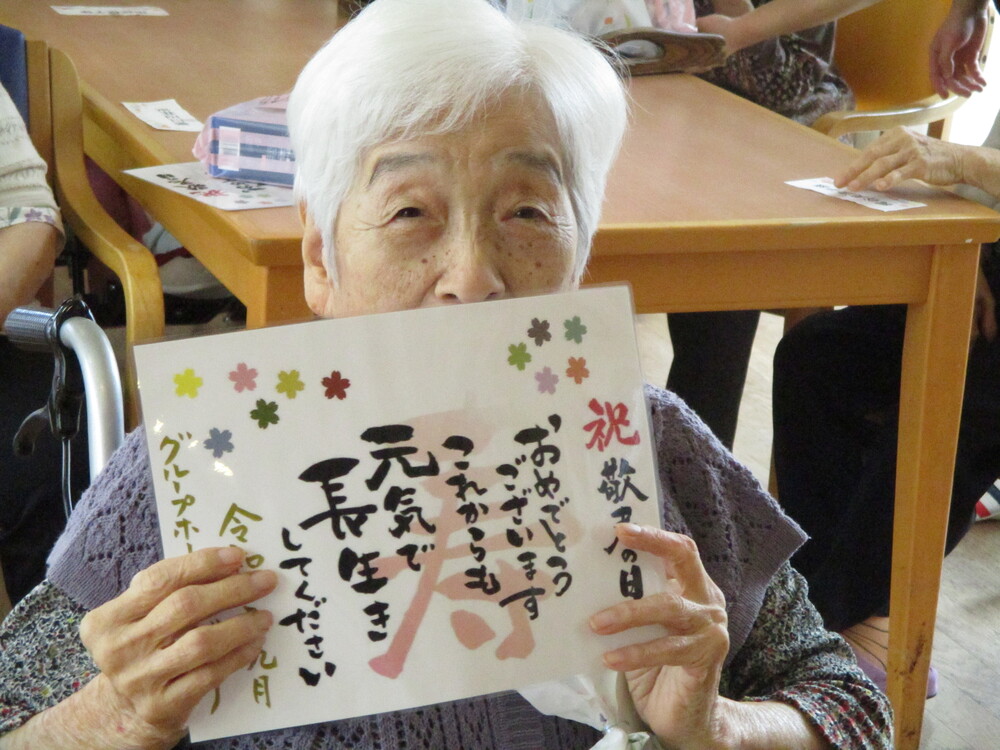 祝 敬老の日
おめでとう
ございます
これからも
元気で
長生き
してください
寿
令和 九月
グループホー